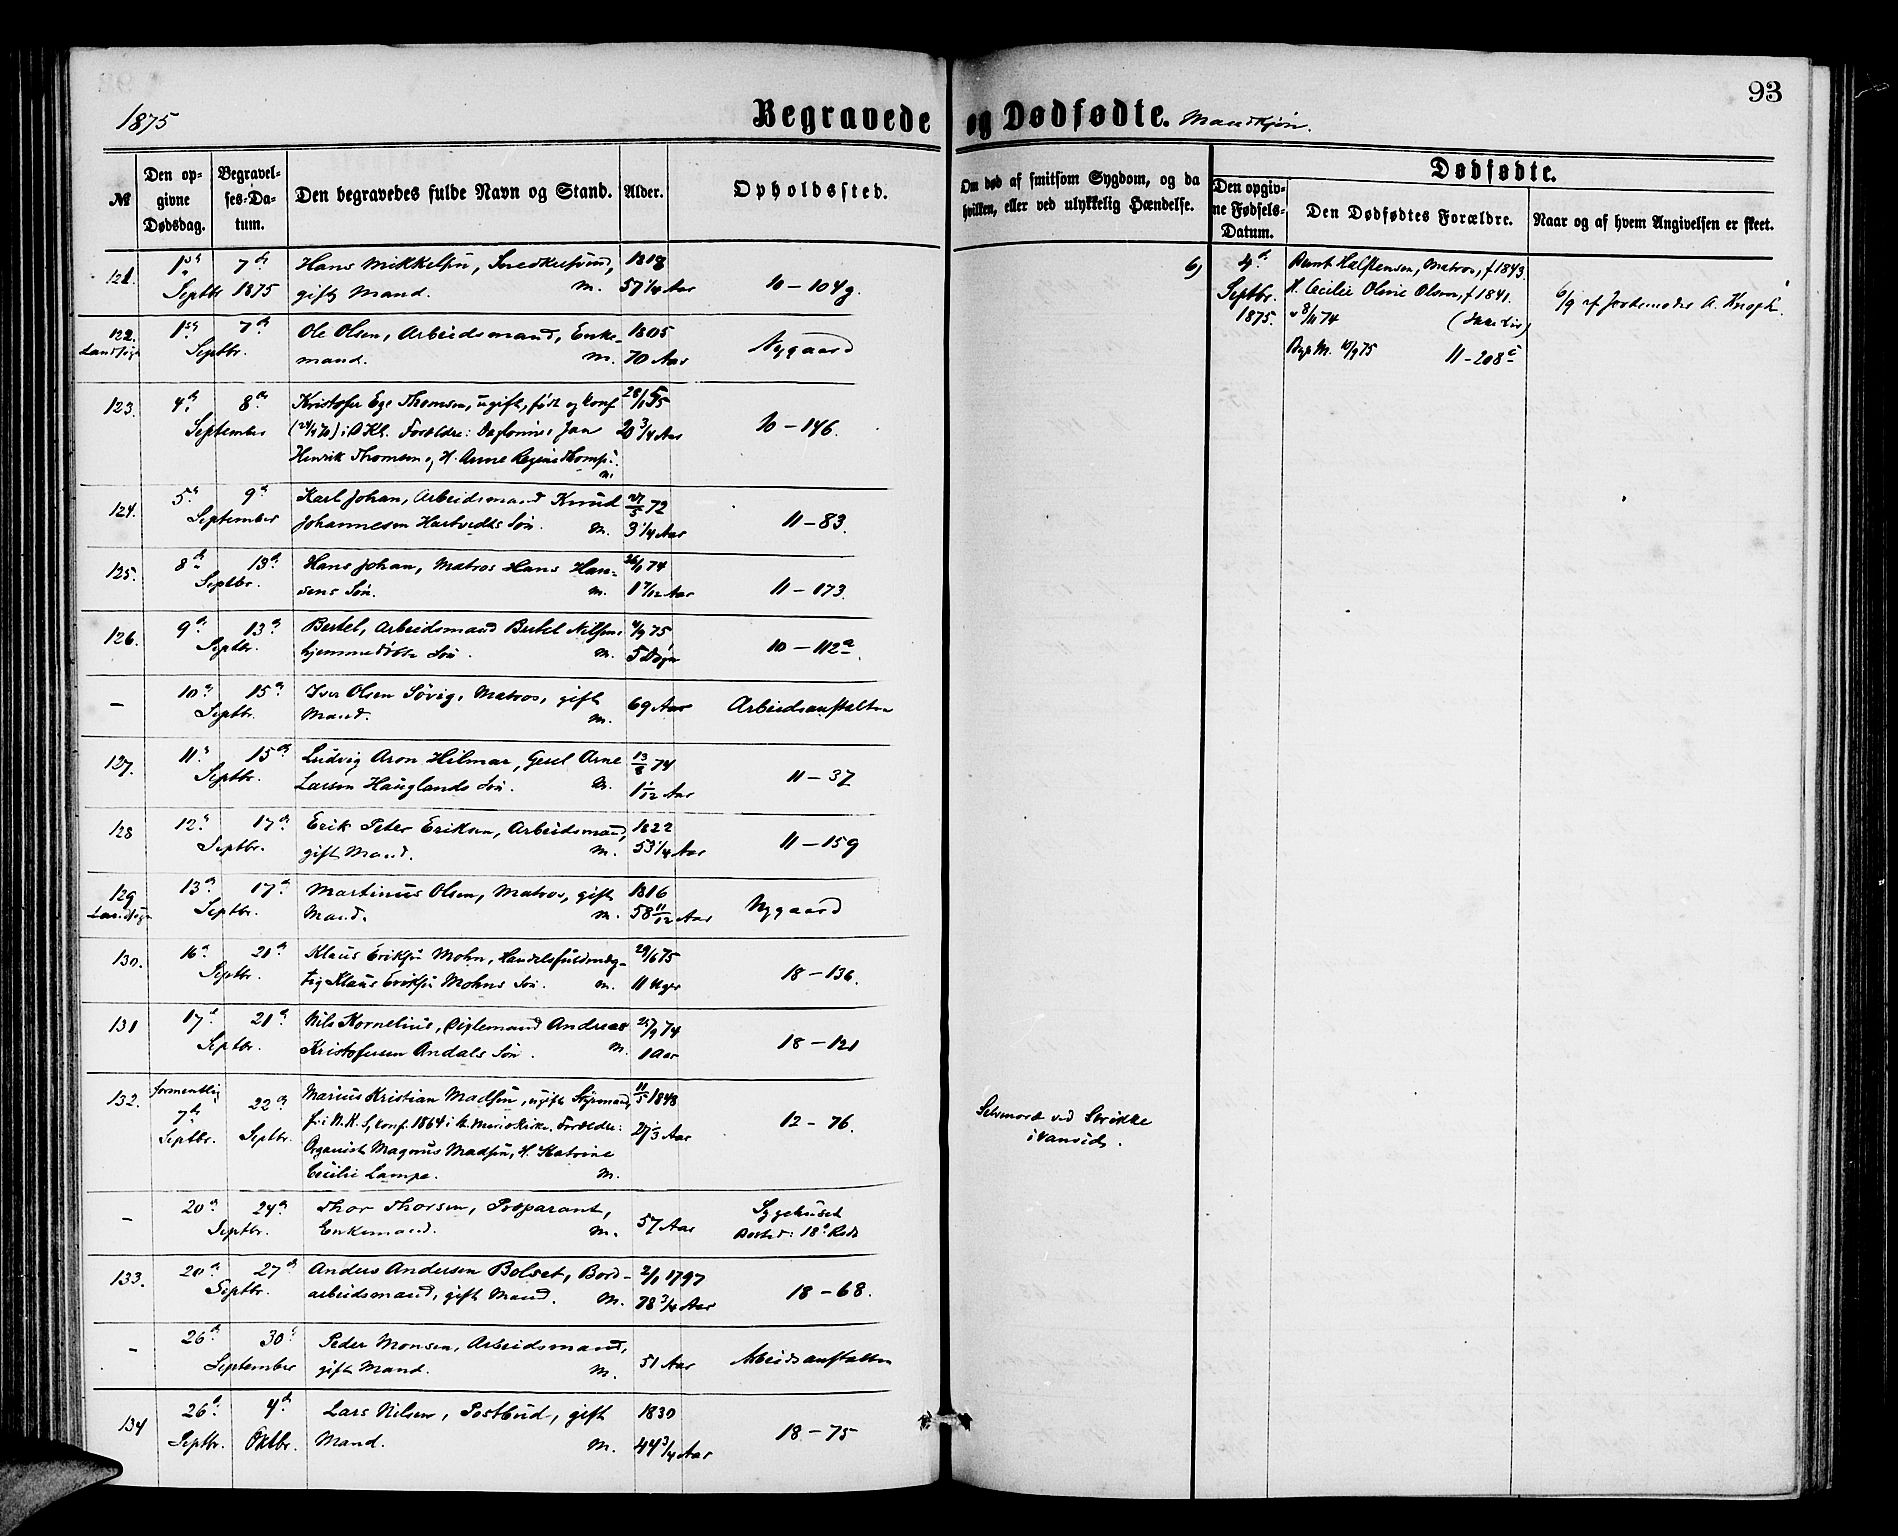 93
1875 Begravede og Dødfødte. Mandkjøn.
№ Den opgivne Dødsdag. Begravelses-Datum. Den begravedes fulde Navn og Stand. Alder. Opholdssted.
Om død af smitsom Sygdom, og da hvilken, eller ved ulykkelig Hændelse.
Dødfødte.
Den opgivne Fødsels-Datum. Den Dødfødtes Forældre. Naar og af hvem Angivelsen er skeet.
121. 1ste 7de Hans Mikkelsen, 1818
Septbr 1875 gift Mand. M. 57 1/4 Aar 10 – 104g.
122. 1ste 7de Ole Olsen, Arbeidsmand, Enke- 1805
Landsogn Septbr. mand. M. 70 Aar Nygaard
123. 4de 8de Kristofer Ege Thomsen, ugift, født og konf 28/11 55
September i DK. Forældre: Jan 20 3/4 Aar 10 – 146.
Henrik Thomsen, H. Anne
M.
124. 5te 9de Karl Johan, Arbeidsmand Knud 27/5 72
September Johannesen Hartvedts Søn. M. 3 1/4 Aar 11 – 83.
125. 8de 13de Hans Johan, Matros Hans Han- 26/1 74
Septbr. sens Søn. M. 1 7/12 Aar 11 – 173.
126. 9de 13de Bertel, Arbeidsmand Bertel Nilsens 4/9 75
Septbr. hjemmedøbte Søn. M. 5 Døgn 10 – 112a.
– 10de 15de Iver Olsen Søvig, Matros, gift 69 Aar Arbeidsanstalten
Septbr. Mand. M.
127. 11te 15de Ludvig Aron Hilmar, Gesel Arne 13/8 74
Septbr. Larsen Hauglands Søn. M. 1 1/12 Aar 11 – 37
128 12te 17de Erik Peter Eriksen, Arbeidsmand, 1822
Septbr. gift Mand. M. 53 1/4 Aar 11 – 159
129 13de 17de Martinus Olsen, Matros, gift 1816
Landsogn Septbr. Mand. M. 58 11/12 Aar Nygaard
130. 16de 21de Klaus Eriksen Mohn, Handelsfuldmæg- 29/6 75
Septbr. tig Klaus Eriksen Mohns Søn. M. 11 Uger 18 – 136.
131 17de 21de Nils Kornelius, Andreas 25/9 74
Septbr. Kristofersen Andals Søn. M. 1 Aar 18 – 121
132. formentlig 7de Septbr. 22de Septbr. Marius Kristian Madsen, ugift Styrmand, 11/5 1848
f. i N.K. S, konf. 1864 i Forældre: 27 1/3 Aar 12 – 76.
Organist Magnus Madsen, H. Katrine
Cecilie Lampe. M.
Selvmord ved Strikke
i vanvid.
– 20de 24de Thor Thorsen, Præparant, 57 Aar Sygehuset
Septbr. Enkemand. M. Bosted: 18de Rode
133. 20de 27de Anders Andersen Bolset, Bord- 2/1 1797
Septbr. arbeidsmand, gift Mand. M. 78 3/4 Aar 18 – 68.
– 26de 30te Peder Monsen, Arbeidsmand,
September gift Mand. M. 51 Aar Arbeidsanstalten
134 26de 4de Lars Nilsen, Postbud, gift 1830
Septbr. Oktbr. Mand. M. 44 3/4 Aar 18 – 75
6) 4de Bernt Halstensen, Matros, f 1843.
Septbr. H. Cecilie Oline Olsen, f 1841.
1875. 8/11 74
10/9 75 11 – 208c
6/9 af Jordemoder A. Knoph.